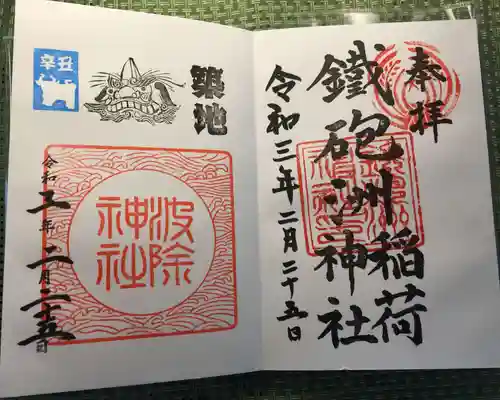 奉拝
鐵砲洲稲荷
神社
令和三年二月二十五日
辛丑
築地
波除
神社
令和三年二月二十五日